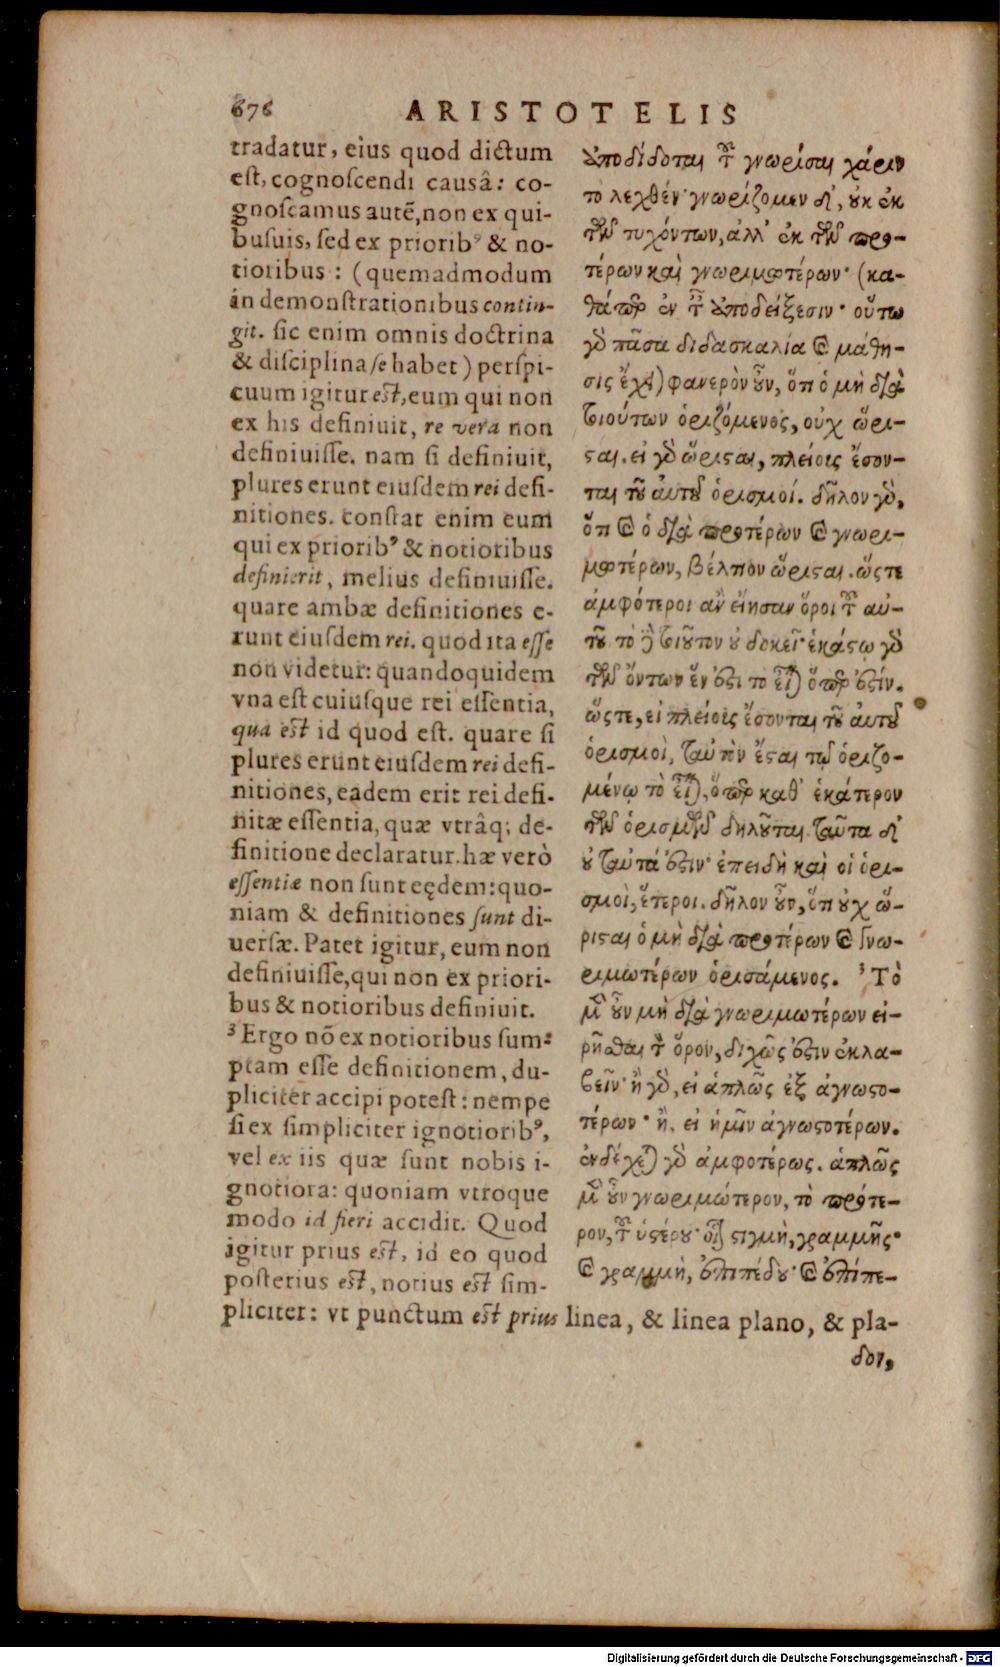 676 ARISTOTELIS
tradatur, eius quod dictum
est, cognoſcendi causâ: co-
gnoſcamus autē, non ex qui-
buſuis, ſed ex priorib⁹ & no-
tioribus: (quemadmodum
in demonſtrationibus contin-
git. ſic enim omnis doctrina
& diſciplina ſe habet) perſpi-
cuum igitur est, eum qui non
ex his definiuit, re vera non
definiuiſſe. nam ſi definiuit,
plures erunt eiuſdem rei defi-
nitiones. conſtat enim eum
qui ex priorib⁹ & notioribus
definierit, melius definiuiſſe.
quare ambæ definitiones e-
runt eiuſdem rei. quod ita eſſe
non videtur: quandoquidem
vna eſt cuiuſque rei eſſentia,
qua est id quod eſt. quare ſi
plures erunt eiuſdem rei defi-
nitiones, eadem erit rei defi-
nitæ eſſentia, quæ vtrâq; de-
finitione declaratur. hæ verò
eſſentiæ non ſunt eędem: quo-
niam & definitiones ſunt di-
uerſæ. Patet igitur, eum non
definiuiſſe, qui non ex priori-
bus & notioribus definiuit.
³ Ergo nō ex notioribus ſum-
ptam eſſe definitionem, du-
pliciter accipi poteſt: nempe
ſi ex ſimpliciter ignotiorib⁹,
vel ex iis quæ ſunt nobis i-
gnotiora: quoniam vtroque
modo id fieri accidit. Quod
igitur prius est, id eo quod
poſterius est, notius est ſim-
pliciter: vt punctum est prius linea, & linea plano, & pla-
ἀποδίδοται τοῦ γνωρίσαι χάριν
τὸ λεχθέν· γνωρίζομεν δὲ, οὐκ ἐκ
τῶν τυχόντων, ἀλλ' ἐκ τῶν προ-
τέρων καὶ γνωριμωτέρων· (κα-
θάπερ ἐν ταῖς ἀποδείξεσιν· οὕτω
γὰρ πᾶσα διδασκαλία καὶ μάθη-
σις ἔχει) φανερὸν οὖν, ὅτι ὁ μὴ διὰ
τοιούτων ὁριζόμενος, οὐχ ὥρι-
σται. εἰ γὰρ ὥρισται, πλείοις ἔσον-
ται τοῦ αὐτοῦ ὁρισμοί. δῆλον γὰρ,
ὅτι καὶ ὁ διὰ προτέρων καὶ γνωρι-
μωτέρων, βέλτιον ὥρισται. ὥστε
ἀμφότεροι ἂν εἴησαν ὅροι τοῦ αὐ-
τοῦ τὸ δὲ τοιοῦτον οὐ δοκεῖ· ἑκάστῳ γὰρ
τῶν ὄντων ἕν ἐστι τὸ εἶναι ὅπερ ἐστίν.
ὥστε, εἰ πλείοις ἔσονται τοῦ αὐτοῦ
ὁρισμοὶ, ταὐτὸν ἔσται τῷ ὁριζο-
μένῳ τὸ εἶναι, ὅπερ καθ' ἑκάτερον
τῶν ὁρισμῶν δηλοῦται. ταῦτα δὲ
οὐ ταὐτά ἐστιν· ἐπειδὴ καὶ οἱ ὁρι-
σμοὶ, ἕτεροι. δῆλον οὖν, ὅτι οὐχ ὥ-
ρισται ὁ μὴ διὰ προτέρων καὶ γνω-
ριμωτέρων ὁρισάμενος. ³ Τὸ
μὲν οὖν μὴ διὰ γνωριμωτέρων εἰ-
ρῆσθαι τὸν ὅρον, διχῶς ἐστιν ἐκλα-
βεῖν· ἢ γὰρ, εἰ ἁπλῶς ἐξ ἀγνωστο-
τέρων· ἢ, εἰ ἡμῖν ἀγνωστοτέρων.
ἐνδέχεται γὰρ ἀμφοτέρως. ἁπλῶς
μὲν οὖν γνωριμώτερον, τὸ πρότε-
ρον, τοῦ ὑστέρου· οἷον στιγμὴ, γραμμῆς·
καὶ γραμμὴ, ἐπιπέδου· καὶ ἐπίπε-
δον,
Digitalisierung gefördert durch die Deutsche Forschungsgemeinschaft - DFG